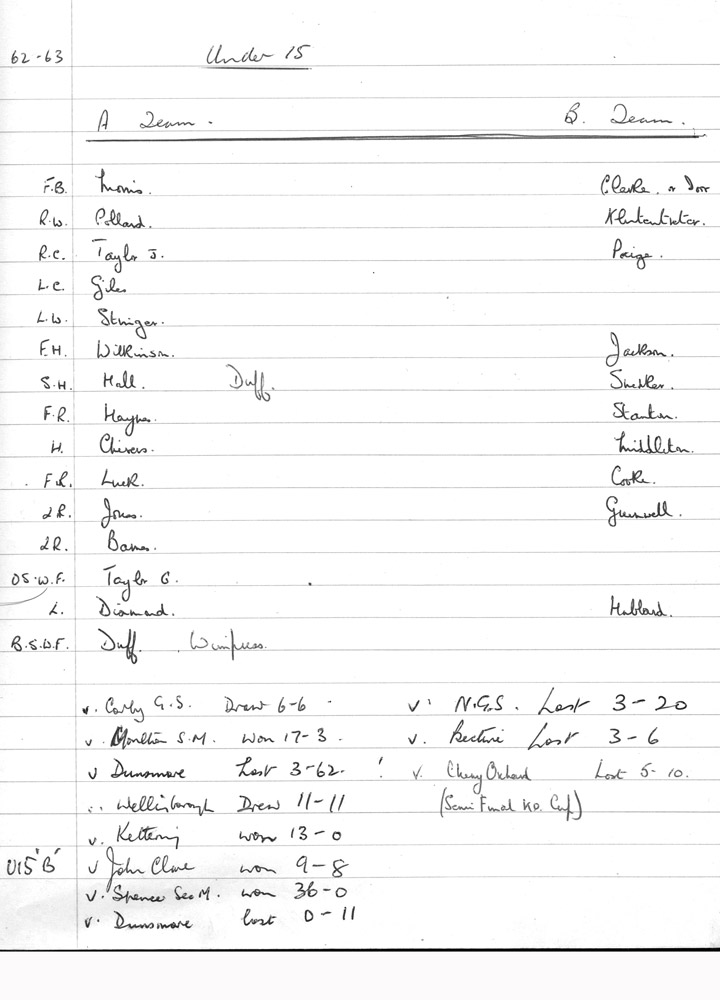 62-63 Under 15
A Team. B. Team.
F.B. Morris. Clarke. or Dorr
R.W. Pollard.
R.C. Taylor J. Paige.
L.C. Giles
L.W. Stringer.
F.H. Wilkinson. Jackson.
S.H. Hall. Duff.
F.R. Haynes Stanton.
H. Chivers. Middleton.
F.R. Luck. Cooke.
2R. Jones. Greenwell.
2R. Barnes.
OS.W.F. Taylor G.
L. Diamond. Hubbard.
B.S.W.F. Duff. Wimpress.
v. Corby G.S. Drew 6-6 v. N.G.S. Lost 3-20
v. Moulton S.M. won 17-3. v. Bective Lost 3-6
v Dunsmore Lost 3-62. ! v. Cherry Orchard Lost 5-10.
Wellingborough Drew 11-11 (Semi Final K.O. Cup)
v. Kettering won 13-0
U15 'B' v John Clare won 9-8
v. Spencer Sec M. won 36-0
v. Dunsmore lost 0-11